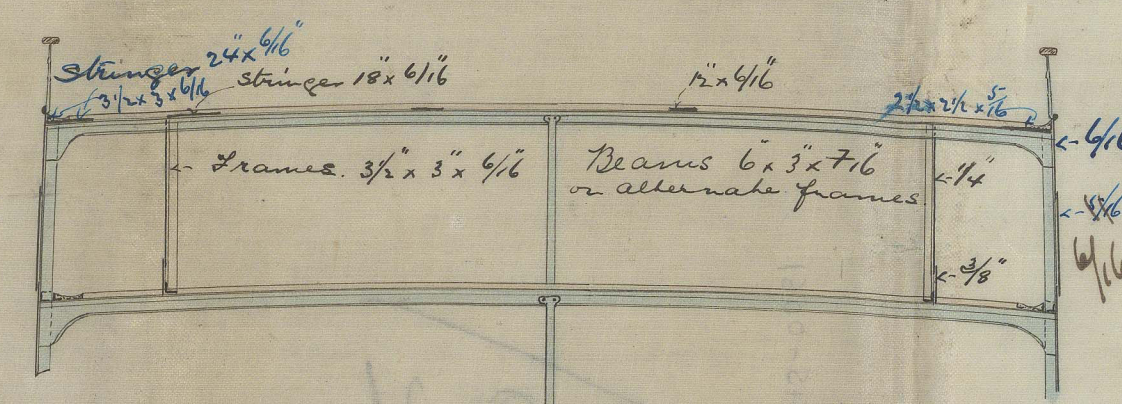 Stringer 24" x 6/16"
3 1/2 x 3 x 6/16"
Stringer 18" x 6/16"
12" x 6/16"
2 1/2 x 2 1/2 x 5/16
6/16
Frames. 3 1/2" x 3" x 6/16"
Beams 6" x 3" x 7/16"
on alternate frames.
1/4"
3/8"
6/16